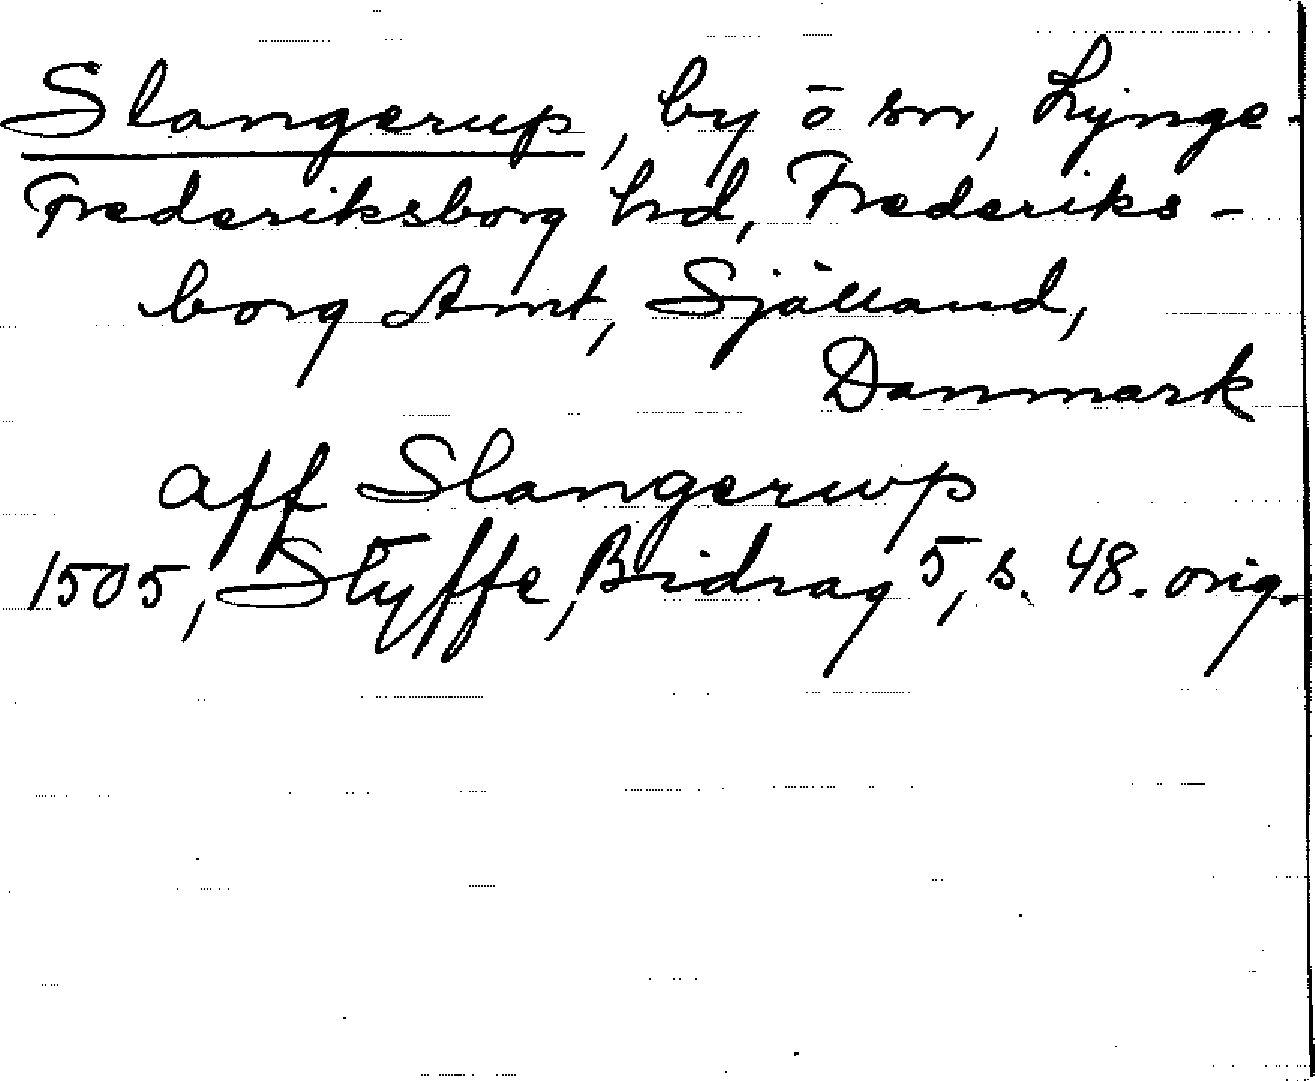 Slangerup, by ō sn, Lynge-
Frederiksborg hd, Frederiks-
borg Amt, Själland,
Danmark
aff Slangerwp
1505, Styffe, Bidrag 5, s. 48. orig.